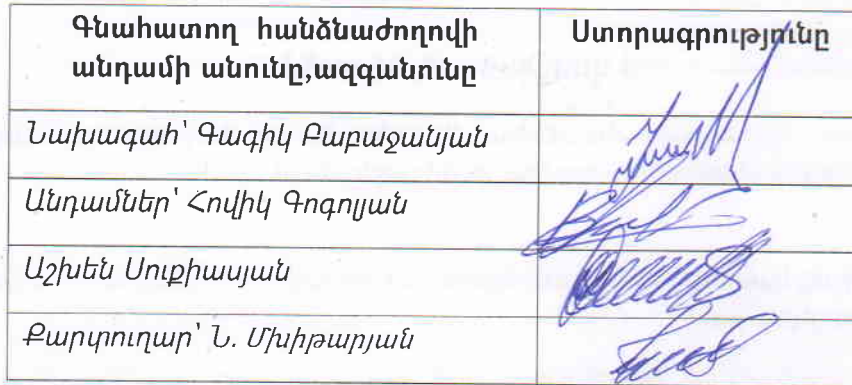 Գնահատող հանձնաժողովի
անդամի անունը,ազգանունը
Ստորագրությունը
Նախագահ՝ Գագիկ Բաբաջանյան
Անդամներ՝ Հովիկ Գոգոլյան
Աշխեն Սուքիասյան
Քարտուղար՝ Ն. Մխիթարյան